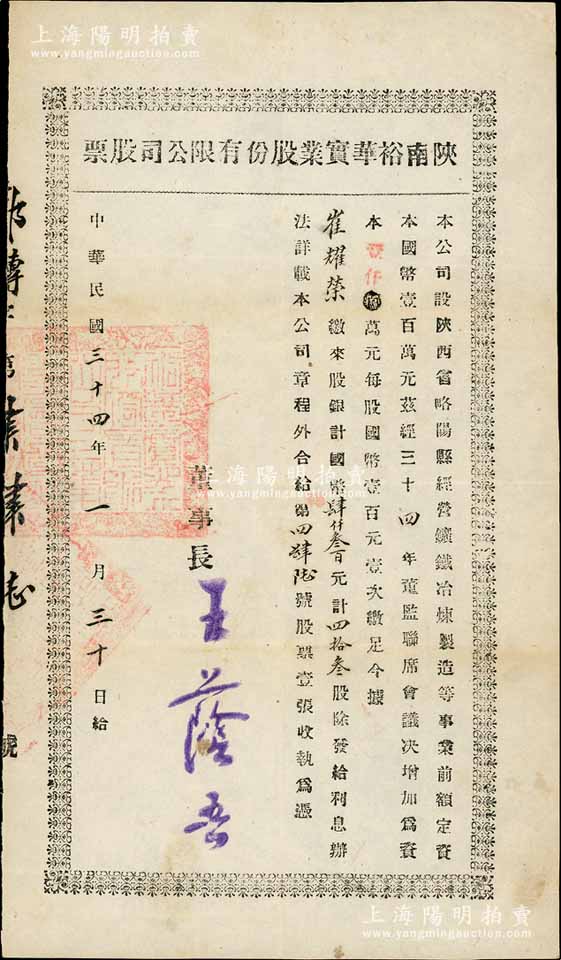 上海陽明拍賣
www.yangmingauction.com
陝南裕華實業股份有限公司股票
本公司設陝西省略陽縣經營鑛鐵冶煉製造等事業前額定資
本國幣壹百萬元茲經三十四年董監聯席會議決增加為資
本壹仟萬元每股國幣壹百元壹次繳足今據
崔耀榮繳來股銀計國幣肆仟叁百元計四拾叁股除發給利息辦
法詳載本公司章程外合給第四肆陆號股票壹張收執為憑
董事長 王蔭吾
中華民國三十四年一月三十日給
號
上海陽明拍賣
www.yangmingauction.com
上海陽明拍賣
www.yangmingauction.com